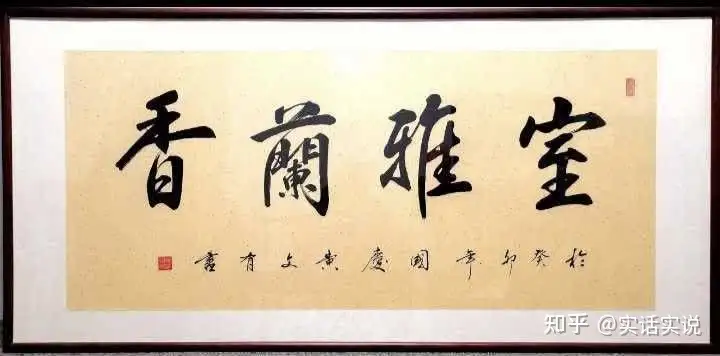 室雅蘭香
於癸卯年國慶黄文有書
知乎 @实话实说